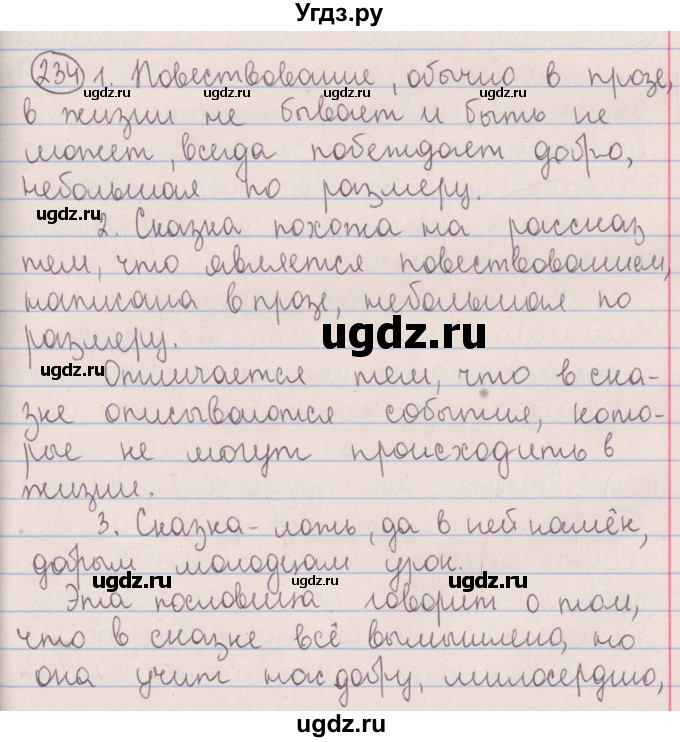 Угдз.ру
234 1. Повествование, обычно в прозе,
ugdz.ru ugdz.ru ugdz.ru
в жизни не бывает и быть не
может, всегда побеждает добро,
ugdz.ru ugdz.ru
небольшая по размеру.
ugdz.ru
2. Сказка похожа на рассказ
тем, что является повествованием,
написана в прозе, небольшая по
ugdz.ru
размеру.
ugdz.ru ugdz.ru
Отличается тем, что в ска-
зке описываются события, кото-
рые не могут происходить в
жизни.
3. Сказка - ложь, да в ней намёк,
добрым молодцам урок.
ugdz.ru ugdz.ru ugdz.ru
Эта пословица говорит о том,
что в сказке всё вымышлено, но
она учит нас добру, милосердию,
ugdz.ru